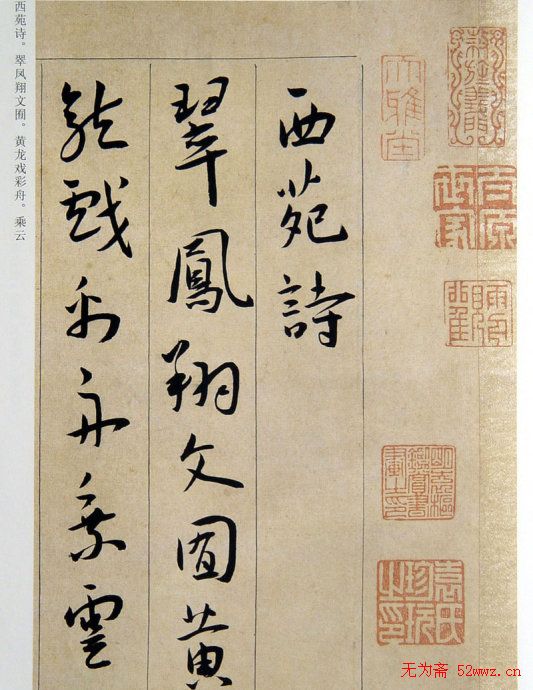 西苑詩
翠鳳翔文囿黄
龍戲彩舟乗雲
西苑诗。翠凤翔文囿。黄龙戏彩舟。乘云
大雅堂
无为斋 52wwz.cn